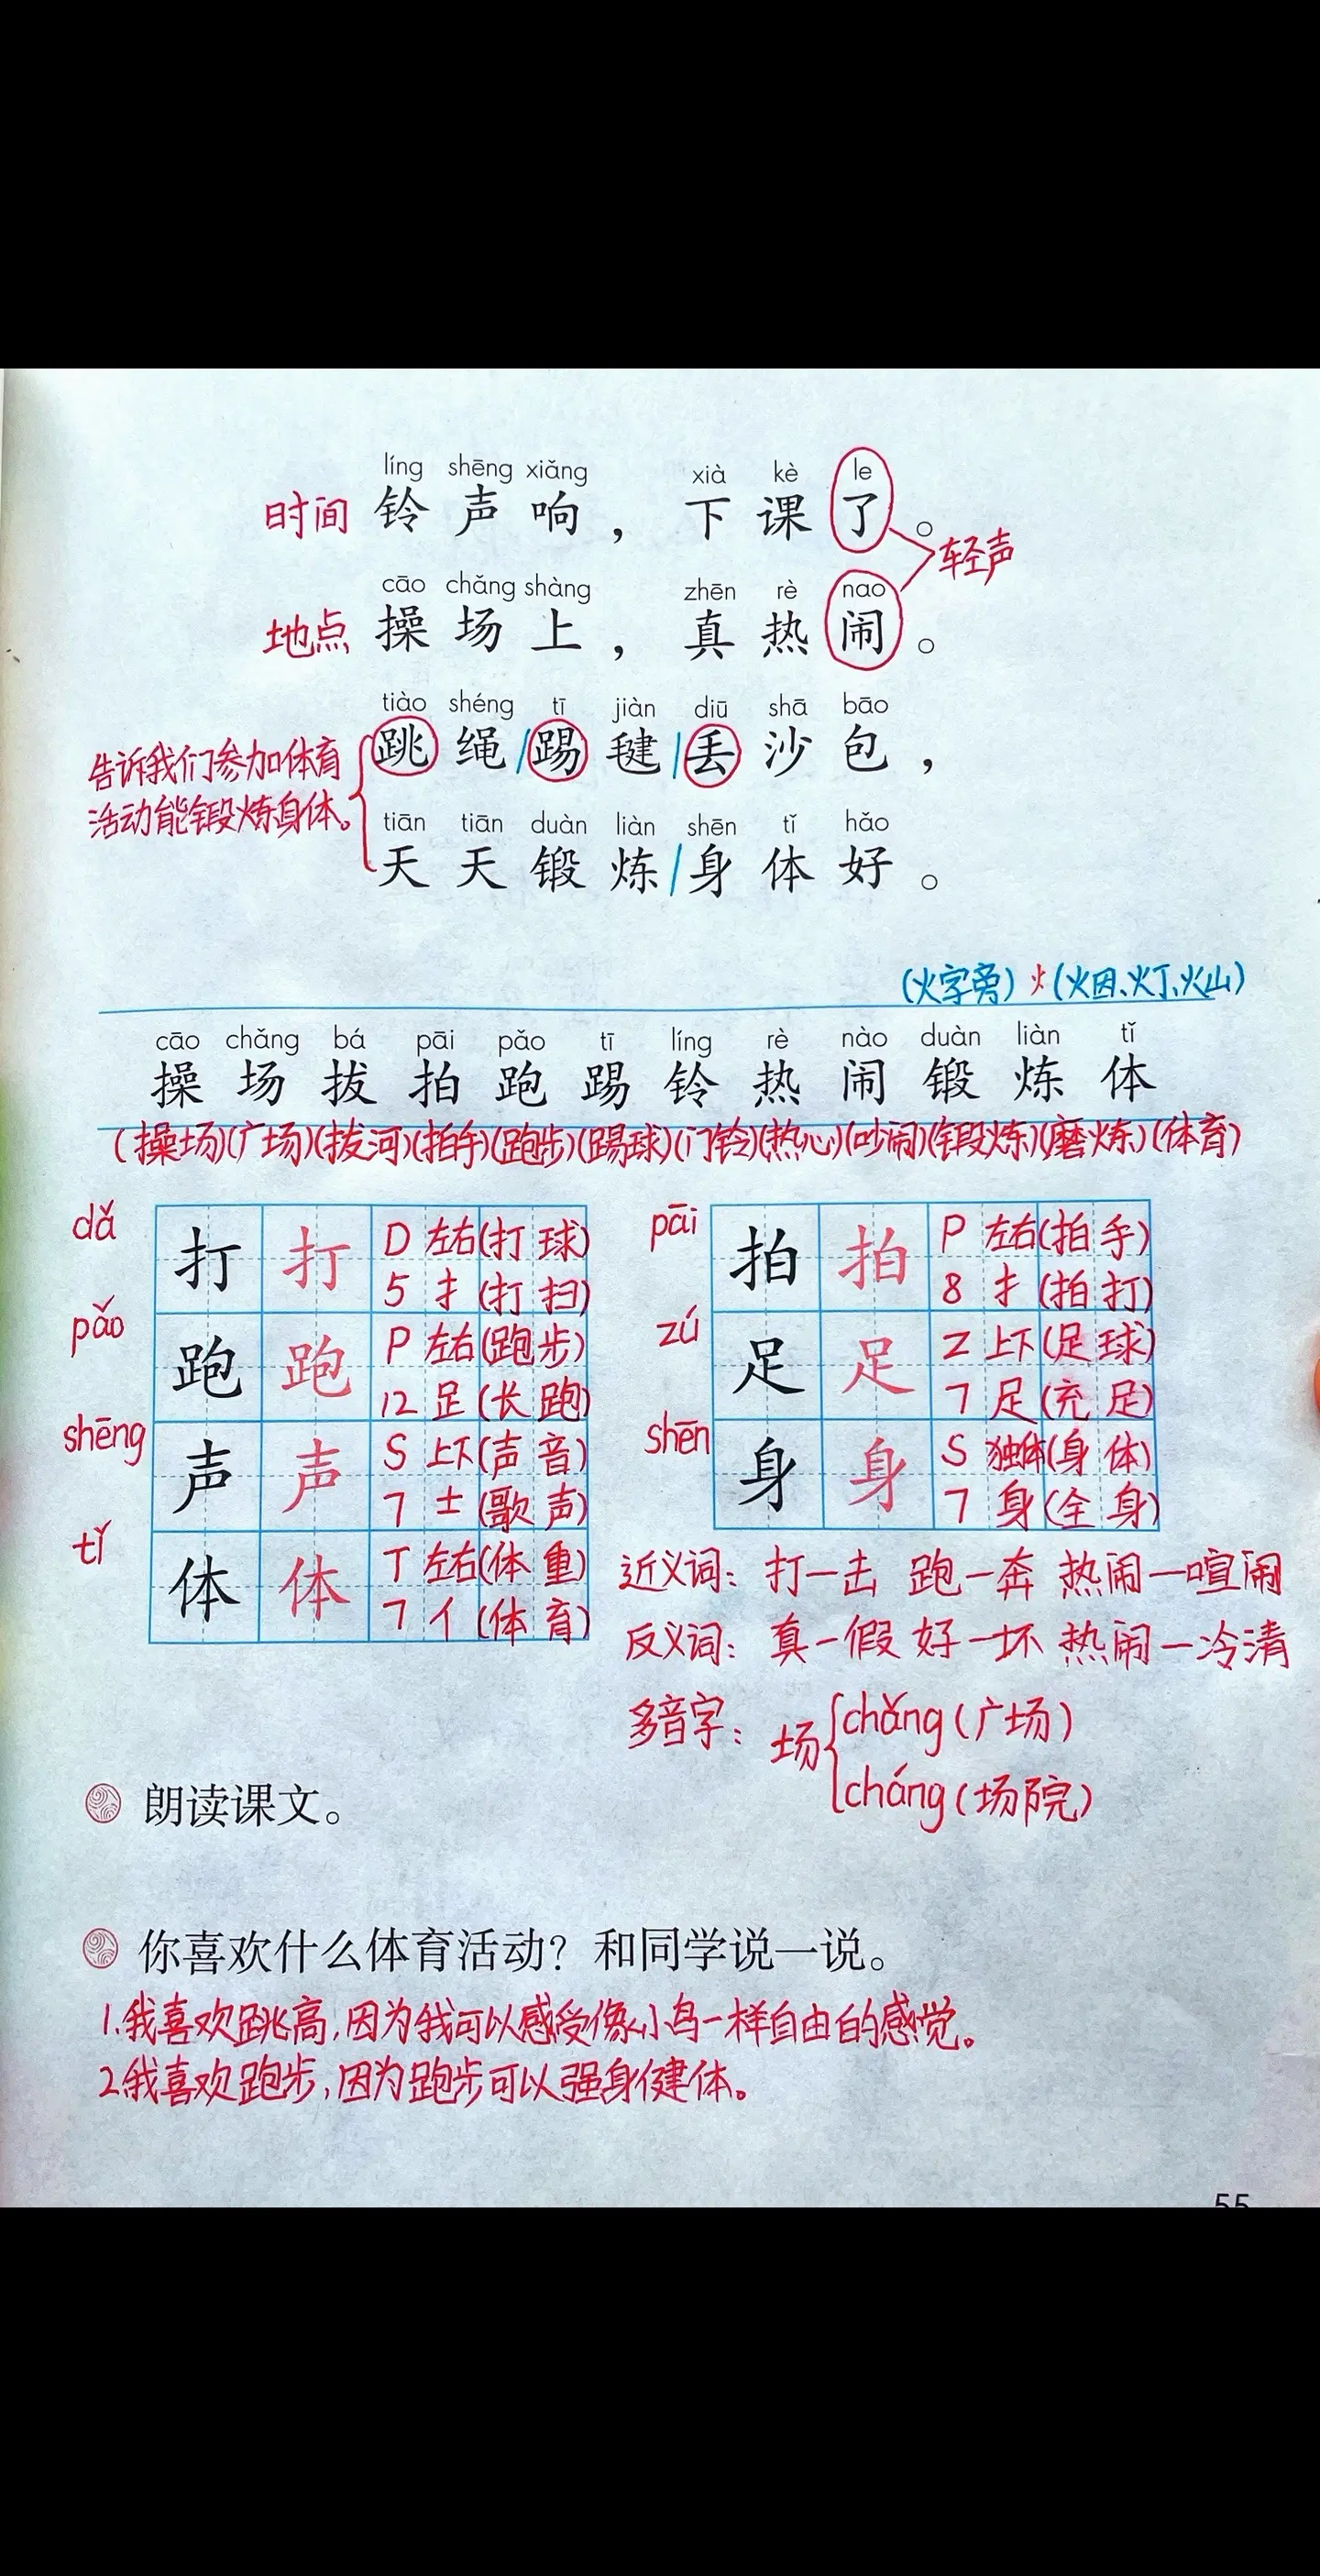 líng shēng xiǎng xià kè le
时间 铃声响，下课了。
轻声
cāo chǎng shàng zhēn rè nao
地点 操场上，真热闹。
tiào shéng tī jiàn diū shā bāo
跳绳/踢毽/丢沙包，
告诉我们参加体育
活动能锻炼身体。
tiān tiān duàn liàn shēn tǐ hǎo
天天锻炼/身体好。
(火字旁) 火 (火因、火丁、火山)
cāo chǎng bá pāi pǎo tī líng rè nào duàn liàn tǐ
操 场 拔 拍 跑 踢 铃 热 闹 锻 炼 体
(操场)(广场)(拔河)(拍手)(跑步)(踢球)(门铃)(热心)(吵闹)(锻炼)(磨炼)(体育)
dǎ 打 打 D 左右(打球)
5 扌(打扫)
pǎo 跑 跑 P 左右(跑步)
12 足(长跑)
shēng 声 声 S 上下(声音)
7 士(歌声)
tǐ 体 体 T 左右(体重)
7 亻(体育)
pāi 拍 拍 P 左右(拍手)
8 扌(拍打)
zú 足 足 Z 上下(足球)
7 足(充足)
shēn 身 身 S 独体(身体)
7 身(全身)
近义词：打—击 跑—奔 热闹—喧闹
反义词：真—假 好—坏 热闹—冷清
多音字：场 chǎng(广场)
cháng(场院)
朗读课文。
你喜欢什么体育活动？和同学说一说。
1.我喜欢跳高，因为我可以感受像小鸟一样自由的感觉。
2.我喜欢跑步，因为跑步可以强身健体。
55